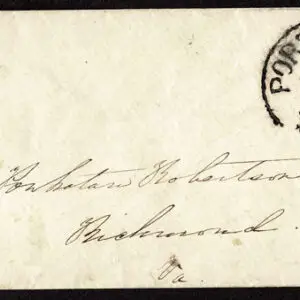 POR
Powhatan Robertson
Richmond.
Va.